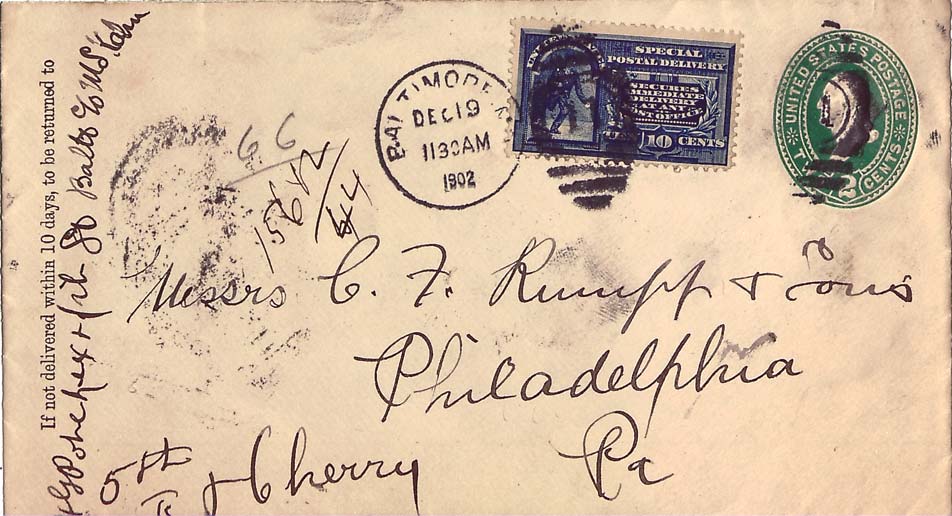 If not delivered within 10 days, to be returned to
St Balto
BALTIMORE
DEC 19
11 30 AM
1902
SPECIAL
POSTAL DELIVERY
SECURES
IMMEDIATE
DELIVERY
AT ANY
POST OFFICE
10 CENTS
UNITED STATES POSTAGE
2 CENTS
66
Messrs C. F. Rumpp & Sons
Philadelphia
Pa
5th
& Cherry